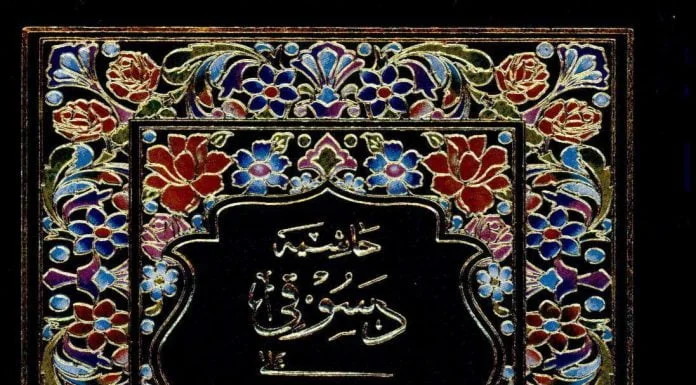 حاشية
دسوقي